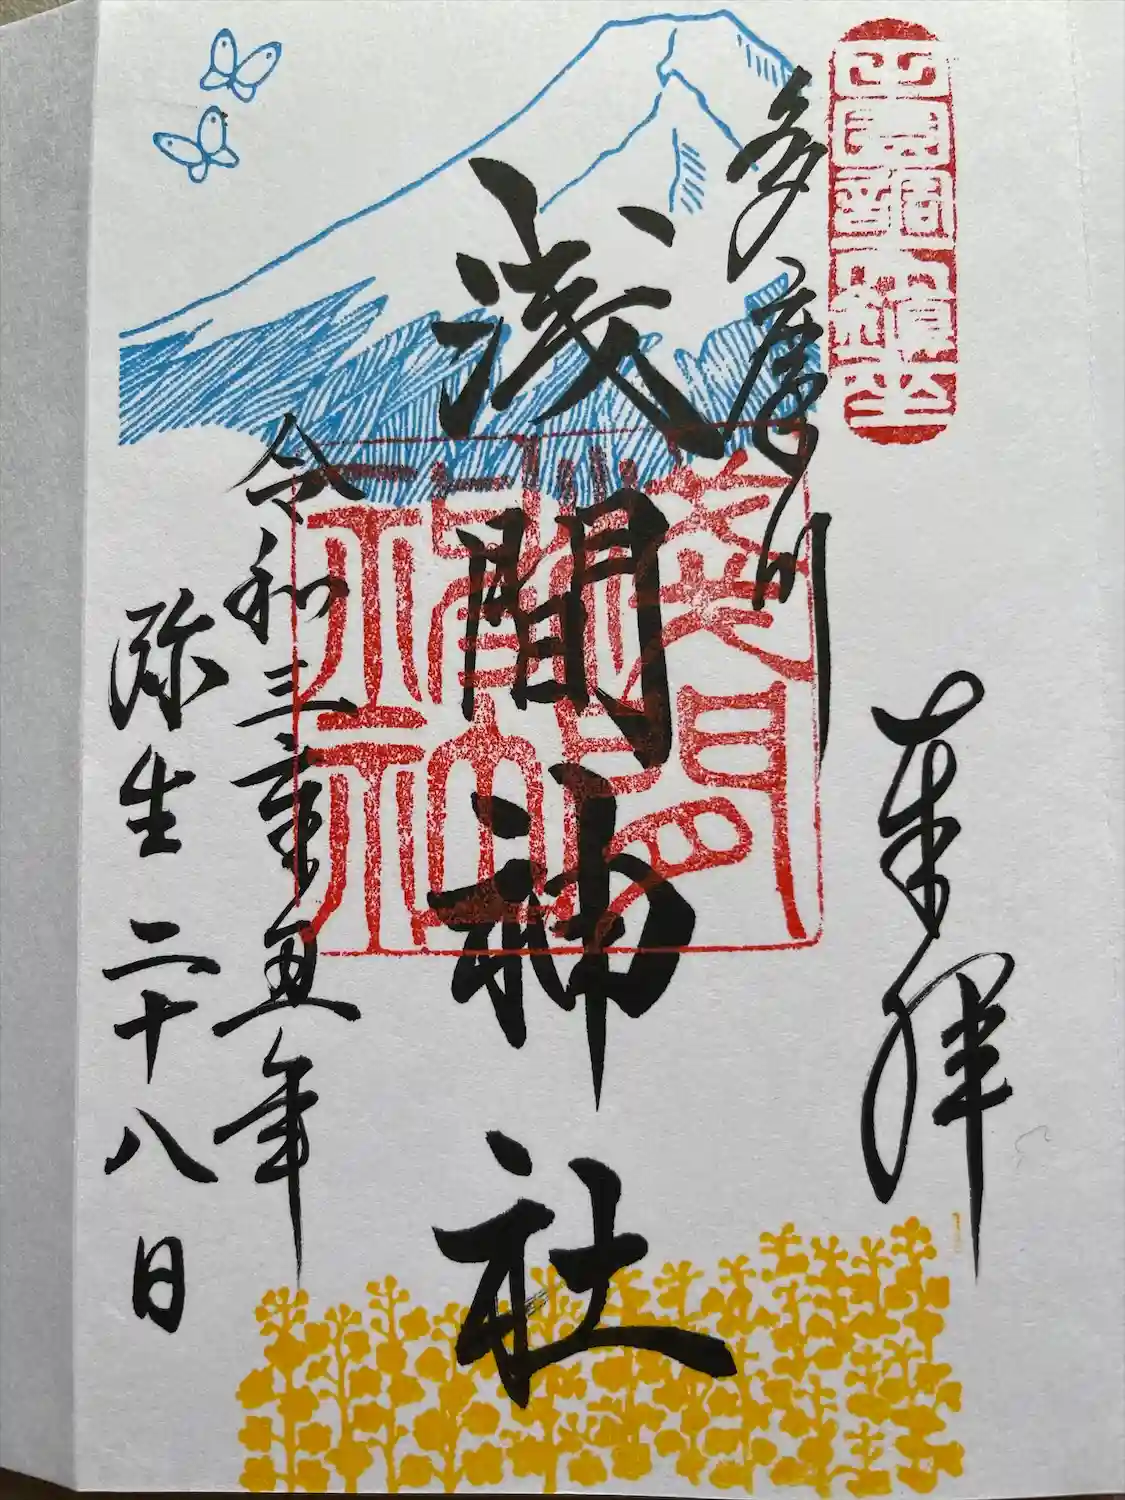 奉拝
田園調布鎮座
多摩川
浅間神社
令和三辛丑年
弥生二十八日